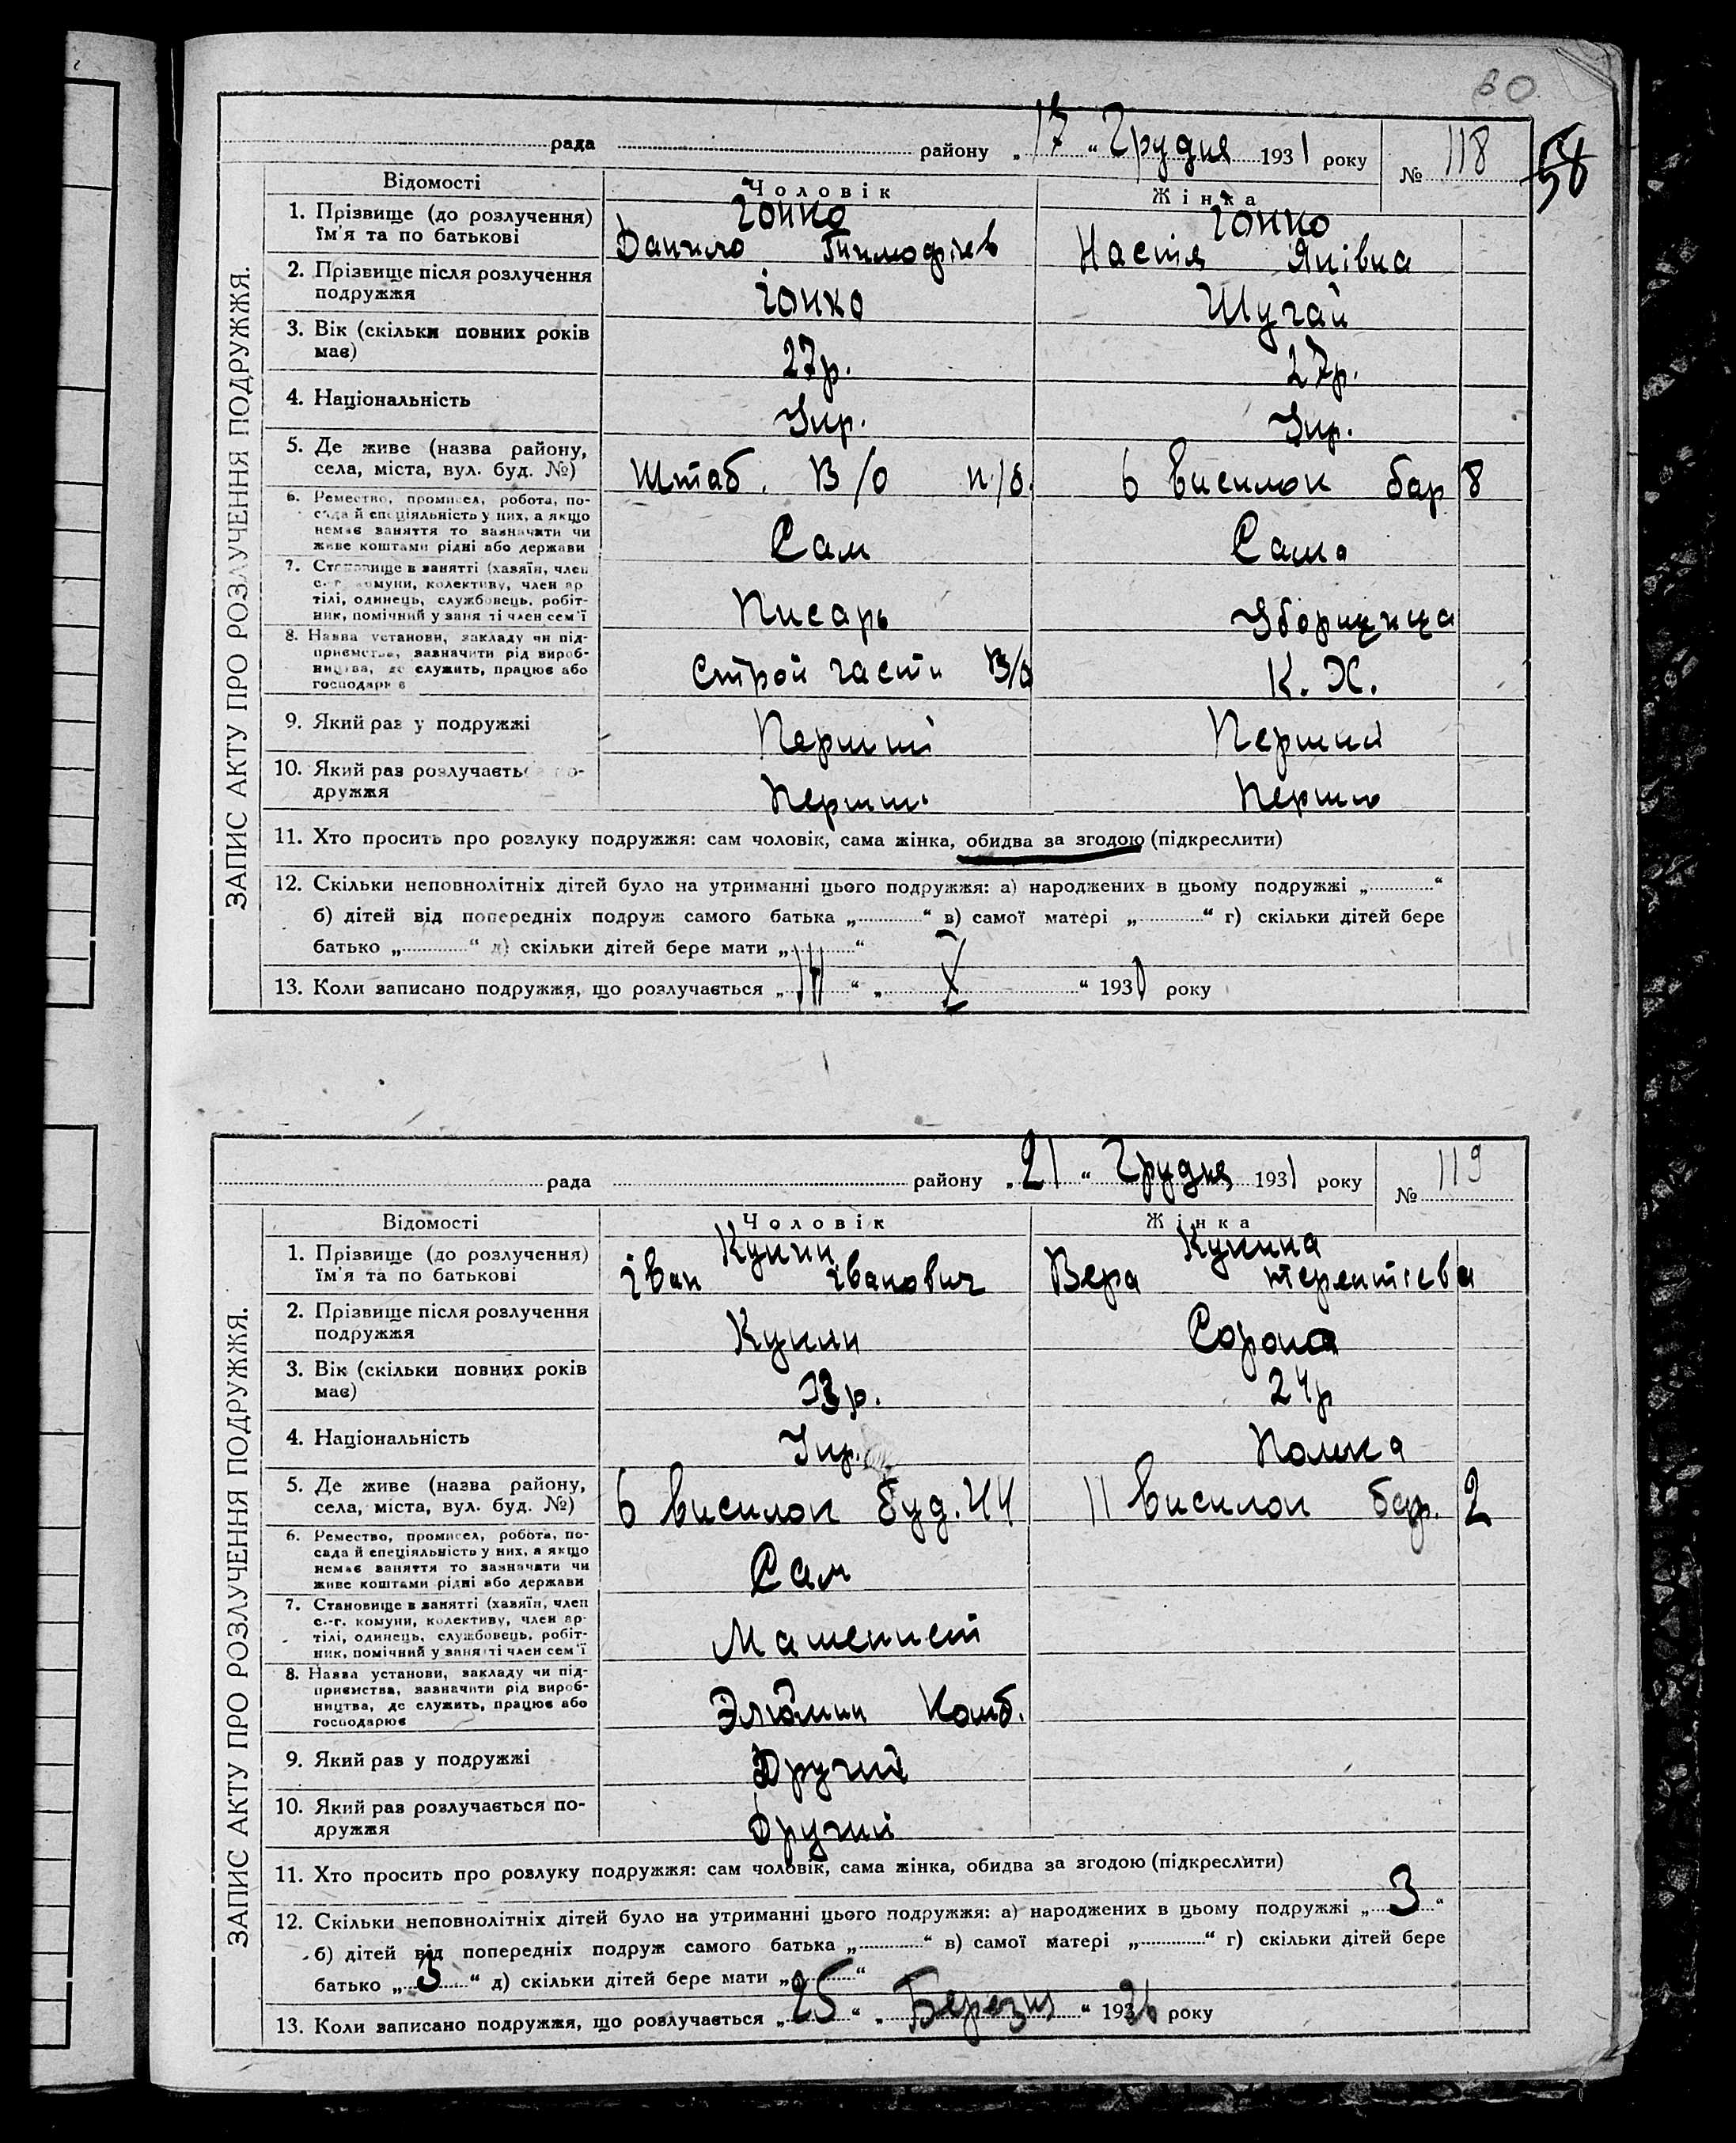 60
58
рада района „17“ Грудня 1931 року № 118
ЗАПИС АКТУ ПРО РОЗЛУЧЕННЯ ПОДРУЖЖЯ.
Відомості Чоловік Жінка
1. Прізвище (до розлучення) їм'я та по батькові Гонко Данило Тимофіев Гонко Настя Яківна
2. Прізвище після розлучення подружжя Гонко Шугай
3. Вік (скільки повних років має) 27р. 27р.
4. Національність Укр. Укр.
5. Де живе (назва району, села, міста, вул. буд. №) Штаб. В/О п/о. 6 висилок бар 8
6. Ремество, промисел, робота, посада й спеціяльність у них, а якщо немає заняття то зазначити чи живе коштами рідні або держави Сам Сама
7. Становище в занятті (хазяїн, член с.-г. комуни, колективу, член артілі, одинець, службовець, робітник, помічний у занятті член сем'ї Писарь Уборщица
8. Назва установи, закладу чи підприємства, зазначити рід виробництва, де служить, працює або господарює Строй части В/о К. Х.
9. Який раз у подружжі Перший Перший
10. Який раз розлучається подружжя Перший Перший
11. Хто просить про розлуку подружжя: сам чоловік, сама жінка, обидва за згодою (підкреслити)
12. Скільки неповнолітніх дітей було на утриманні цього подружжя: а) народжених в цьому подружжі „ “
б) дітей від попередніх подруж самого батька „ “ в) самої матері „ “ г) скільки дітей бере
батько „ “ д) скільки дітей бере мати „ “
13. Коли записано подружжя, що розлучається „ “ „ X “ 1930 року
рада району „21“ Грудня 1931 року № 119
ЗАПИС АКТУ ПРО РОЗЛУЧЕННЯ ПОДРУЖЖЯ.
Відомості Чоловік Жінка
1. Прізвище (до розлучення) їм'я та по батькові Кукин Іван Іванович Кукина Вера Терентієва
2. Прізвище після розлучення подружжя Кукин Сорока
3. Вік (скільки повних років має) 33р. 24р
4. Національність Укр. Полька
5. Де живе (назва району, села, міста, вул. буд. №) 6 висилок буд. 44 11 висилок бар. 2
6. Ремество, промисел, робота, посада й спеціяльність у них, а якщо немає заняття то зазначати чи живе коштами рідні або держави Сам
7. Становище в занятті (хазяїн, член с.-г. комуни, колективу, член артілі, одинець, службовець, робітник, помічний у занятті член сем'ї Машенист
8. Назва установи, закладу чи підприємства, зазначити рід виробництва, де служить, працює або господарює Элюмин Комб.
9. Який раз у подружжі Другий
10. Який раз розлучається подружжя Другий
11. Хто просить про розлуку подружжя: сам чоловік, сама жінка, обидва за згодою (підкреслити)
12. Скільки неповнолітніх дітей було на утриманні цього подружжя: а) народжених в цьому подружжі „3“
б) дітей від попередніх подруж самого батька „ “ в) самої матері „ “ г) скільки дітей бере
батько „3“ д) скільки дітей бере мати „ “
13. Коли записано подружжя, що розлучається „25“ „Березня“ 1926 року